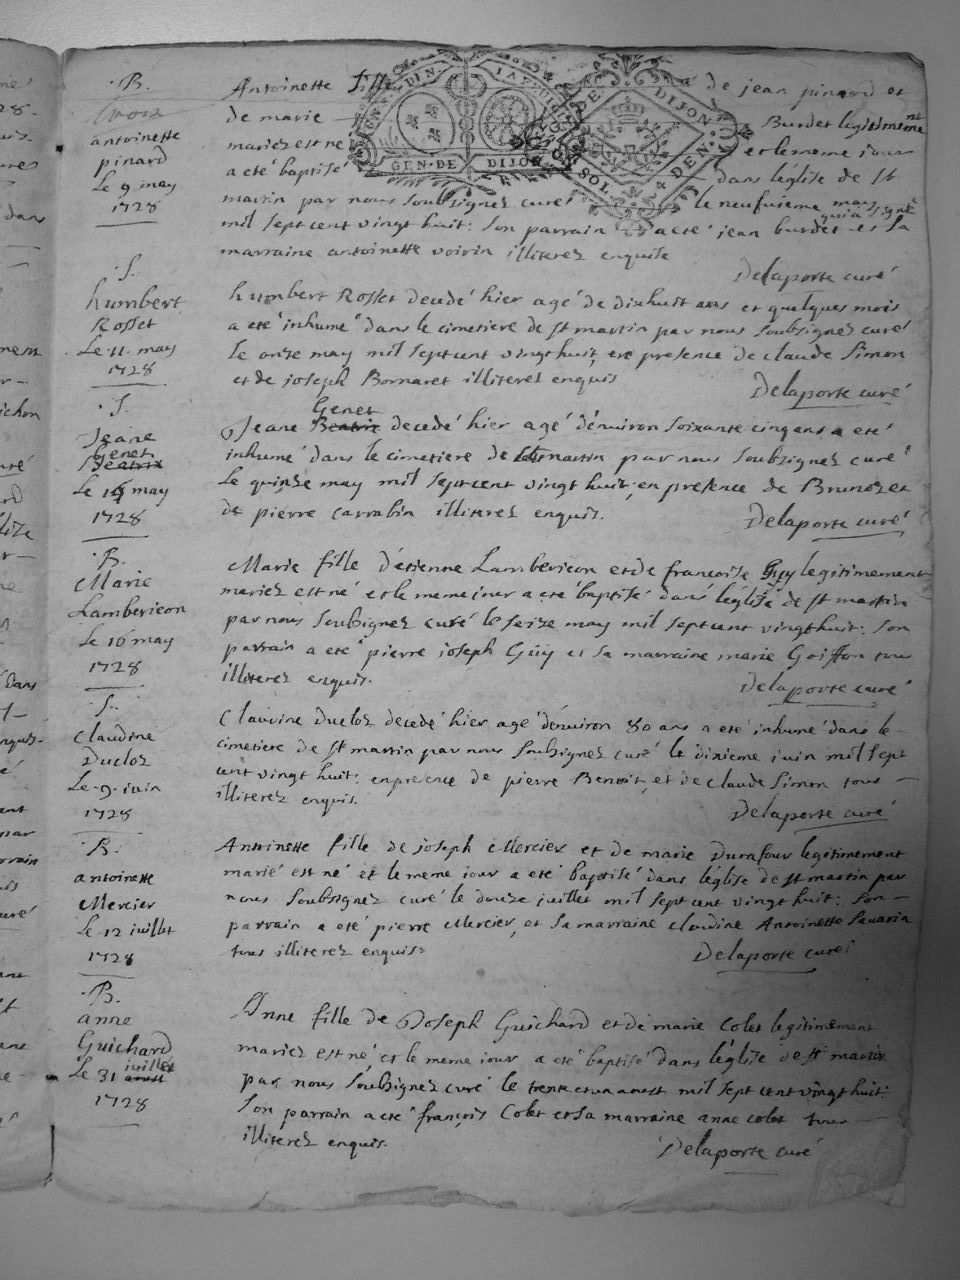 .B.
antoinette
pinard
Le 9 may
1728
Antoinette fille de jean pinard et
de marie Burdet legitimement
mariez est ne et le meme jour
a eté baptisé dans l'église de st
martin par nous soubsignez curé le neufuieme may
mil sept cent vingt huit: son parrain a eté jean burdet et sa
marraine antoinette voirin illiterez enquis
Delaporte curé
.S.
humbert
Rosset
Le 11. may
1728
humbert Rosset decedé hier agé de dixhuit ans et quelques mois
a eté inhumé dans le cimetiere de st martin par nous soubsignez curé
le onze may mil sept cent vingt huit, en presence de claude Simon
et de joseph Bornaret illiterez enquis
Delaporte curé
.S.
Jeane
Genet
Beatrix
Le 15 may
1728
Genet
Jeane Beatrix decedé hier agé d'enuiron soixante cinq ans a eté
inhumé dans le cimetiere de st martin par nous soubsignez curé
le quinze may mil sept cent vingt huit, en presence de
de pierre Carrabin illiterez enquis.
Delaporte curé
.B.
Marie
Lambericon
Le 16 may
1728
Marie fille d'etienne Lambericon et de francoise Guy legitimement
mariez est né et le meme jour a eté baptisé dans l'église de st martin
par nous soubsignez curé le seize may mil sept cent vingt huit: son
parrain a eté pierre joseph Guy et sa marraine marie Goiffon tous
illiterez enquis.
Delaporte curé
.S.
Claudine
Ducloz
Le 9. juin
1728
Claudine Ducloz decedé hier agé d'enuiron 80 ans a eté inhumé dans le
cimetiere de st martin par nous soubsignez curé le dixieme juin mil sept
cent vingt huit: en presence de pierre Benoit, et de claude Simon tous
illiterez enquis.
Delaporte curé
.B.
antoinette
Mercier
Le 12 juillet
1728
Antoinette fille de joseph Mercier et de marie Durafour legitimement
marié est né et le meme jour a eté baptisé dans l'église de st martin par
nous soubsignez curé le douze juillet mil sept cent vingt huit: son
parrain a eté pierre Mercier, et sa marraine claudine Antoinette Sauarin
tous illiterez enquis
Delaporte curé
.B.
anne
Guichard
juillet
Le 31 aoust
1728
Anne fille de Joseph Guichard et de marie Colet legitimement
mariez est né et le meme jour a eté baptisé dans l'église de st martin
par nous soubsignez curé le trente et un aoust mil sept cent vingt huit:
son parrain a eté françois Colet et sa marraine anne colet tous
illiterez enquis.
Delaporte curé